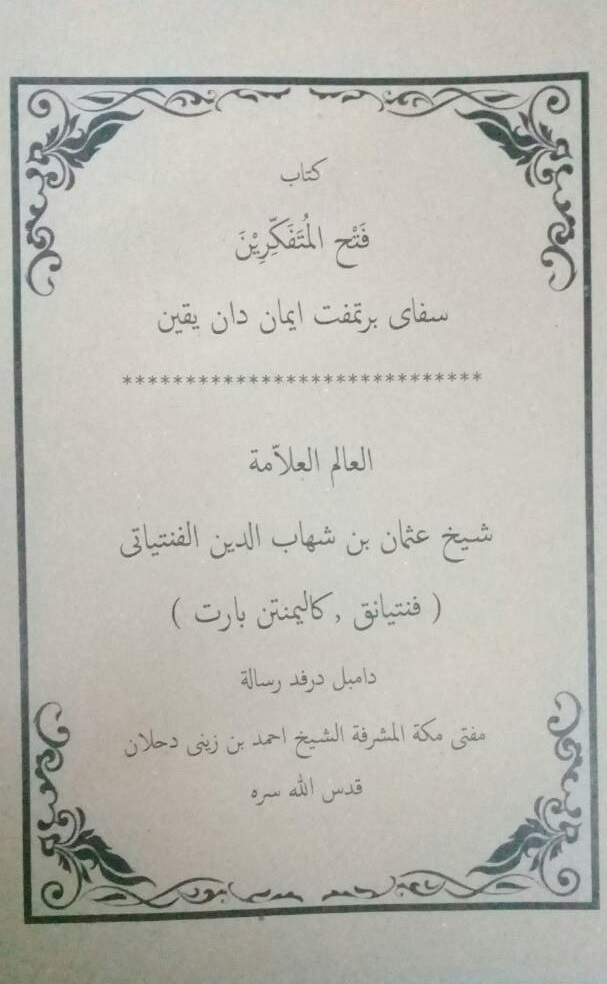 كتاب
فَتْح المُتَفَكِّرِيْنَ
سفاي برتمفت ايمان دان يقين
*****************************
العالم العلاّمة
شيخ عثمان بن شهاب الدين الفنتياتى
( فنتيانق , كاليمنتن بارت )
دامبل درفد رسالة
مفتى مكة المشرفة الشيخ احمد بن زينى دحلان
قدس الله سره